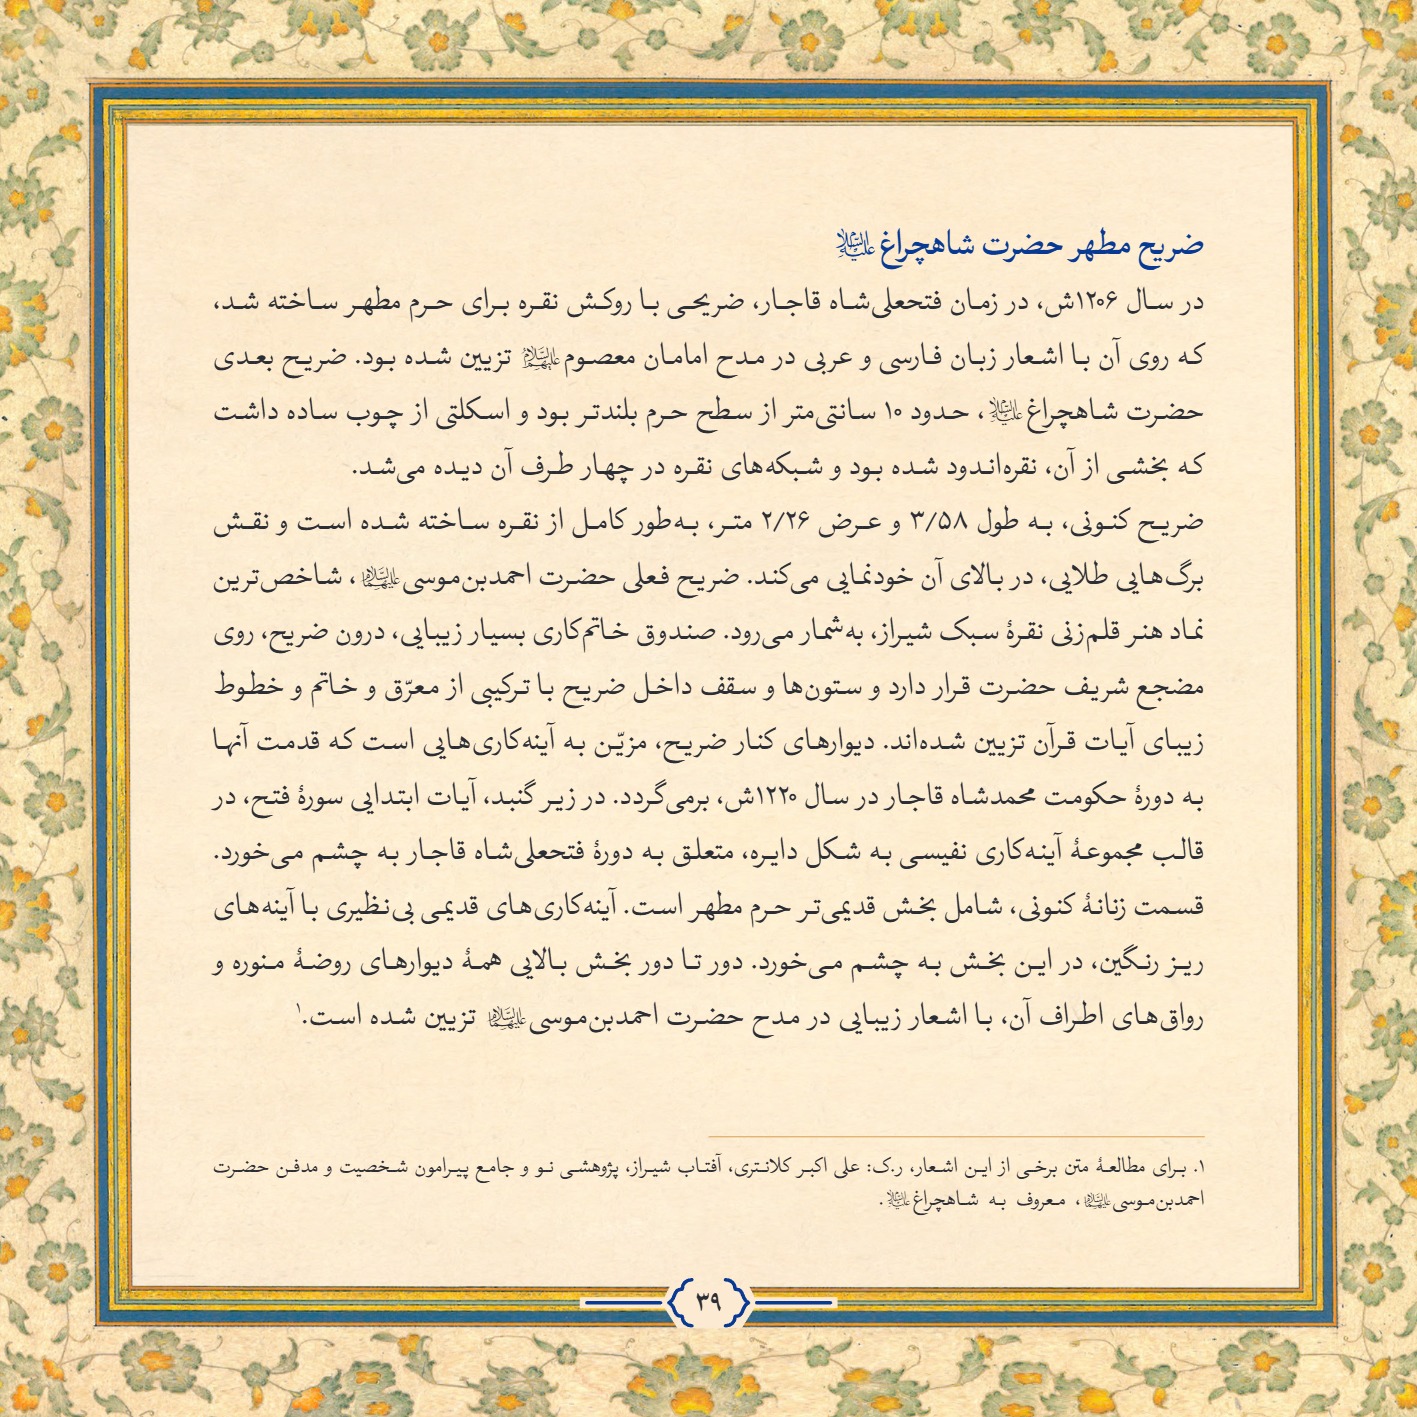 ضریح مطهر حضرت شاهچراغ علیه‌السلام
در سال ۱۲۰۶ش، در زمان فتحعلی‌شاه قاجار، ضریحی با روکش نقره برای حرم مطهر ساخته شد،
که روی آن با اشعار زبان فارسی و عربی در مدح امامان معصوم علیهم‌السلام تزیین شده بود. ضریح بعدی
حضرت شاهچراغ علیه‌السلام، حدود ۱۰ سانتی‌متر از سطح حرم بلندتر بود و اسکلتی از چوب ساده داشت
که بخشی از آن، نقره‌اندود شده بود و شبکه‌های نقره در چهار طرف آن دیده می‌شد.
ضریح کنونی، به طول ۳/۵۸ و عرض ۲/۲۶ متر، به‌طور کامل از نقره ساخته شده است و نقش
برگ‌هایی طلایی، در بالای آن خودنمایی می‌کند. ضریح فعلی حضرت احمدبن‌موسی علیهماالسلام، شاخص‌ترین
نماد هنر قلم‌زنی نقرهٔ سبک شیراز، به‌شمار می‌رود. صندوق خاتم‌کاری بسیار زیبایی، درون ضریح، روی
مضجع شریف حضرت قرار دارد و ستون‌ها و سقف داخل ضریح با ترکیبی از معرّق و خاتم و خطوط
زیبای آیات قرآن تزیین شده‌اند. دیوارهای کنار ضریح، مزیّن به آینه‌کاری‌هایی است که قدمت آنها
به دورهٔ حکومت محمدشاه قاجار در سال ۱۲۲۰ش، برمی‌گردد. در زیر گنبد، آیات ابتدایی سورهٔ فتح، در
قالب مجموعهٔ آینه‌کاری نفیسی به شکل دایره، متعلق به دورهٔ فتحعلی‌شاه قاجار به چشم می‌خورد.
قسمت زنانهٔ کنونی، شامل بخش قدیمی‌تر حرم مطهر است. آینه‌کاری‌های قدیمی بی‌نظیری با آینه‌های
ریز رنگین، در این بخش به چشم می‌خورد. دور تا دور بخش بالایی همهٔ دیوارهای روضهٔ منوره و
رواق‌های اطراف آن، با اشعار زیبایی در مدح حضرت احمدبن‌موسی علیهماالسلام تزیین شده است.۱
۱. برای مطالعهٔ متن برخی از این اشعار، ر.ک: علی اکبر کلانتری، آفتاب شیراز، پژوهشی نو و جامع پیرامون شخصیت و مدفن حضرت
احمدبن‌موسی علیهماالسلام، معروف به شاهچراغ علیه‌السلام.
۳۹